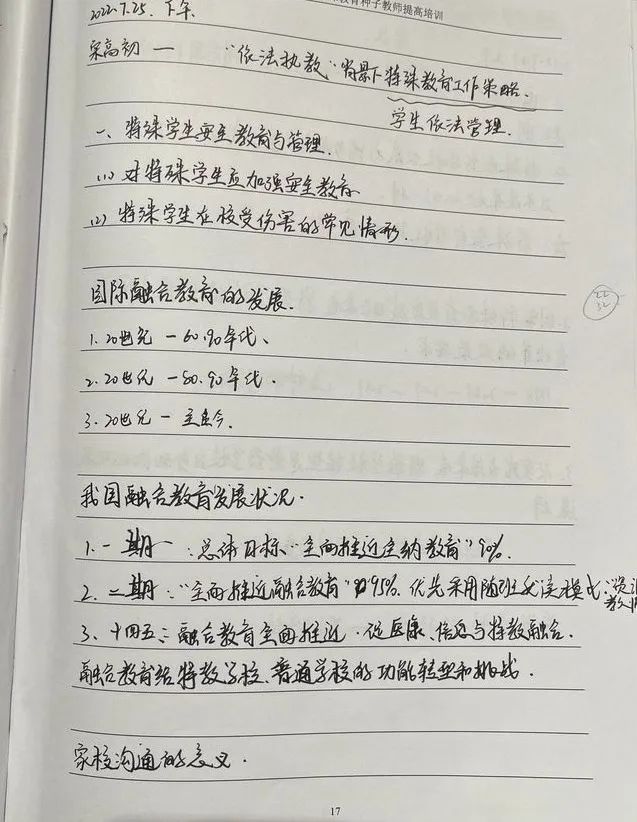 教育种子教师提高培训
2022.7.25. 下午.
宋高初 — "依法执教"背景下特殊教育工作策略.
学生依法管理.
一、特殊学生安全教育与管理.
(1) 对特殊学生应加强安全教育
(2) 特殊学生在校受伤害的常见情形.
国际融合教育的发展.
1. 20世纪 — 60.70年代、
2. 20世纪 — 80.90年代.
3. 20世纪 — 至今.
我国融合教育发展状况.
1. 一期 : 总体目标"全面推进全纳教育" 90%.
2. 二期: "全面推近融合教育" 95%. 优先采用随班就读模式.
3、十四五: 融合教育全面推近. 促医康、信息与特教融合.
融合教育给特教学校、普通学校的功能转型和挑战.
家校沟通的意义.
17